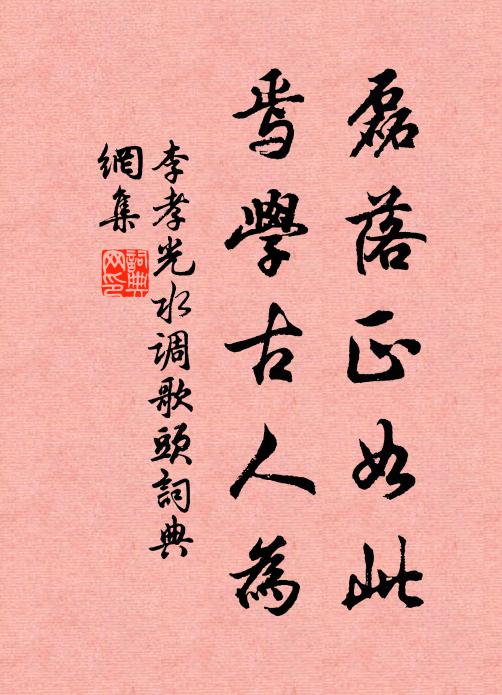 磊落正如此
焉學古人為
李孝光水调歌頭詞典
網集
詞典
网印